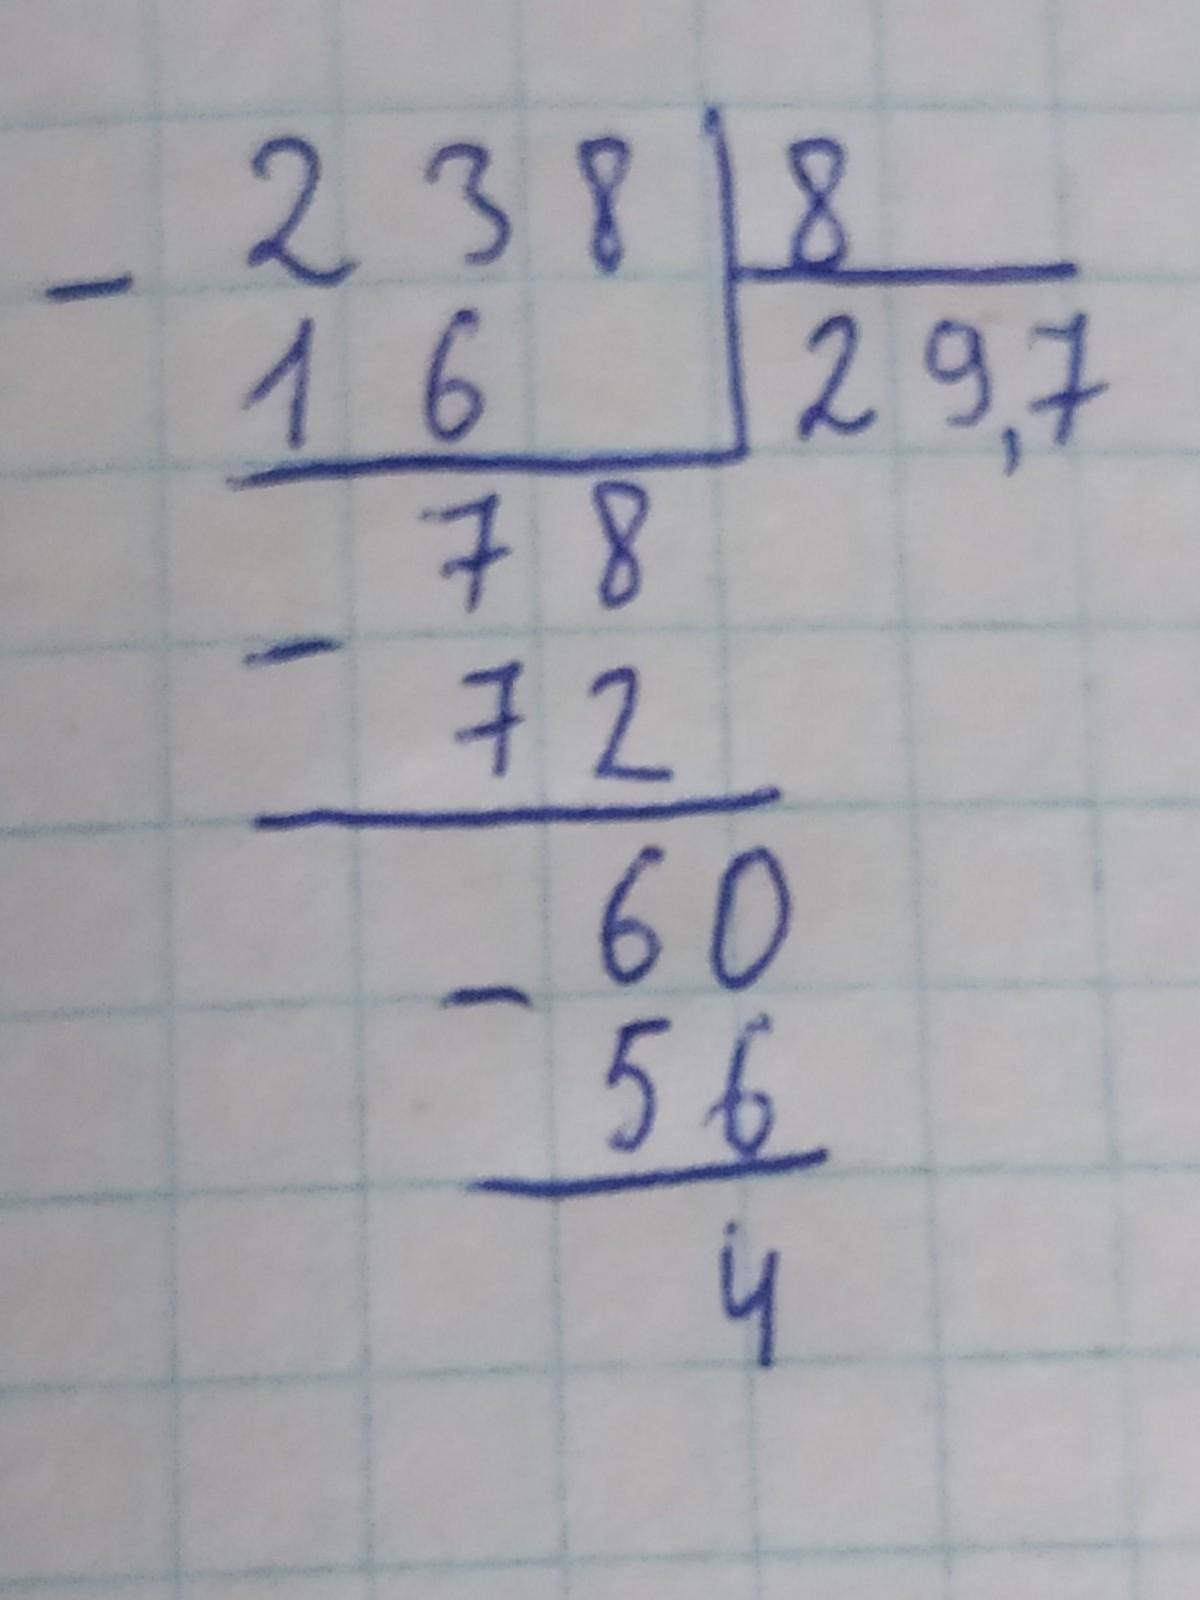 238 8
- 16 29,7
78
- 72
60
- 56
4